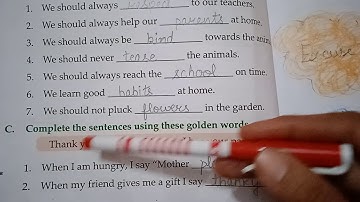 1. We should always listen to our teachers.
2. We should always help our parents at home.
3. We should always be kind towards the anim
4. We should never tease the animals.
5. We should always reach the school on time.
6. We learn good habits at home.
7. We should not pluck flowers in the garden.
C. Complete the sentences using these golden words
Thank y
1. When I am hungry, I say "Mother pl
2. When my friend gives me a gift I say thank
Excuse